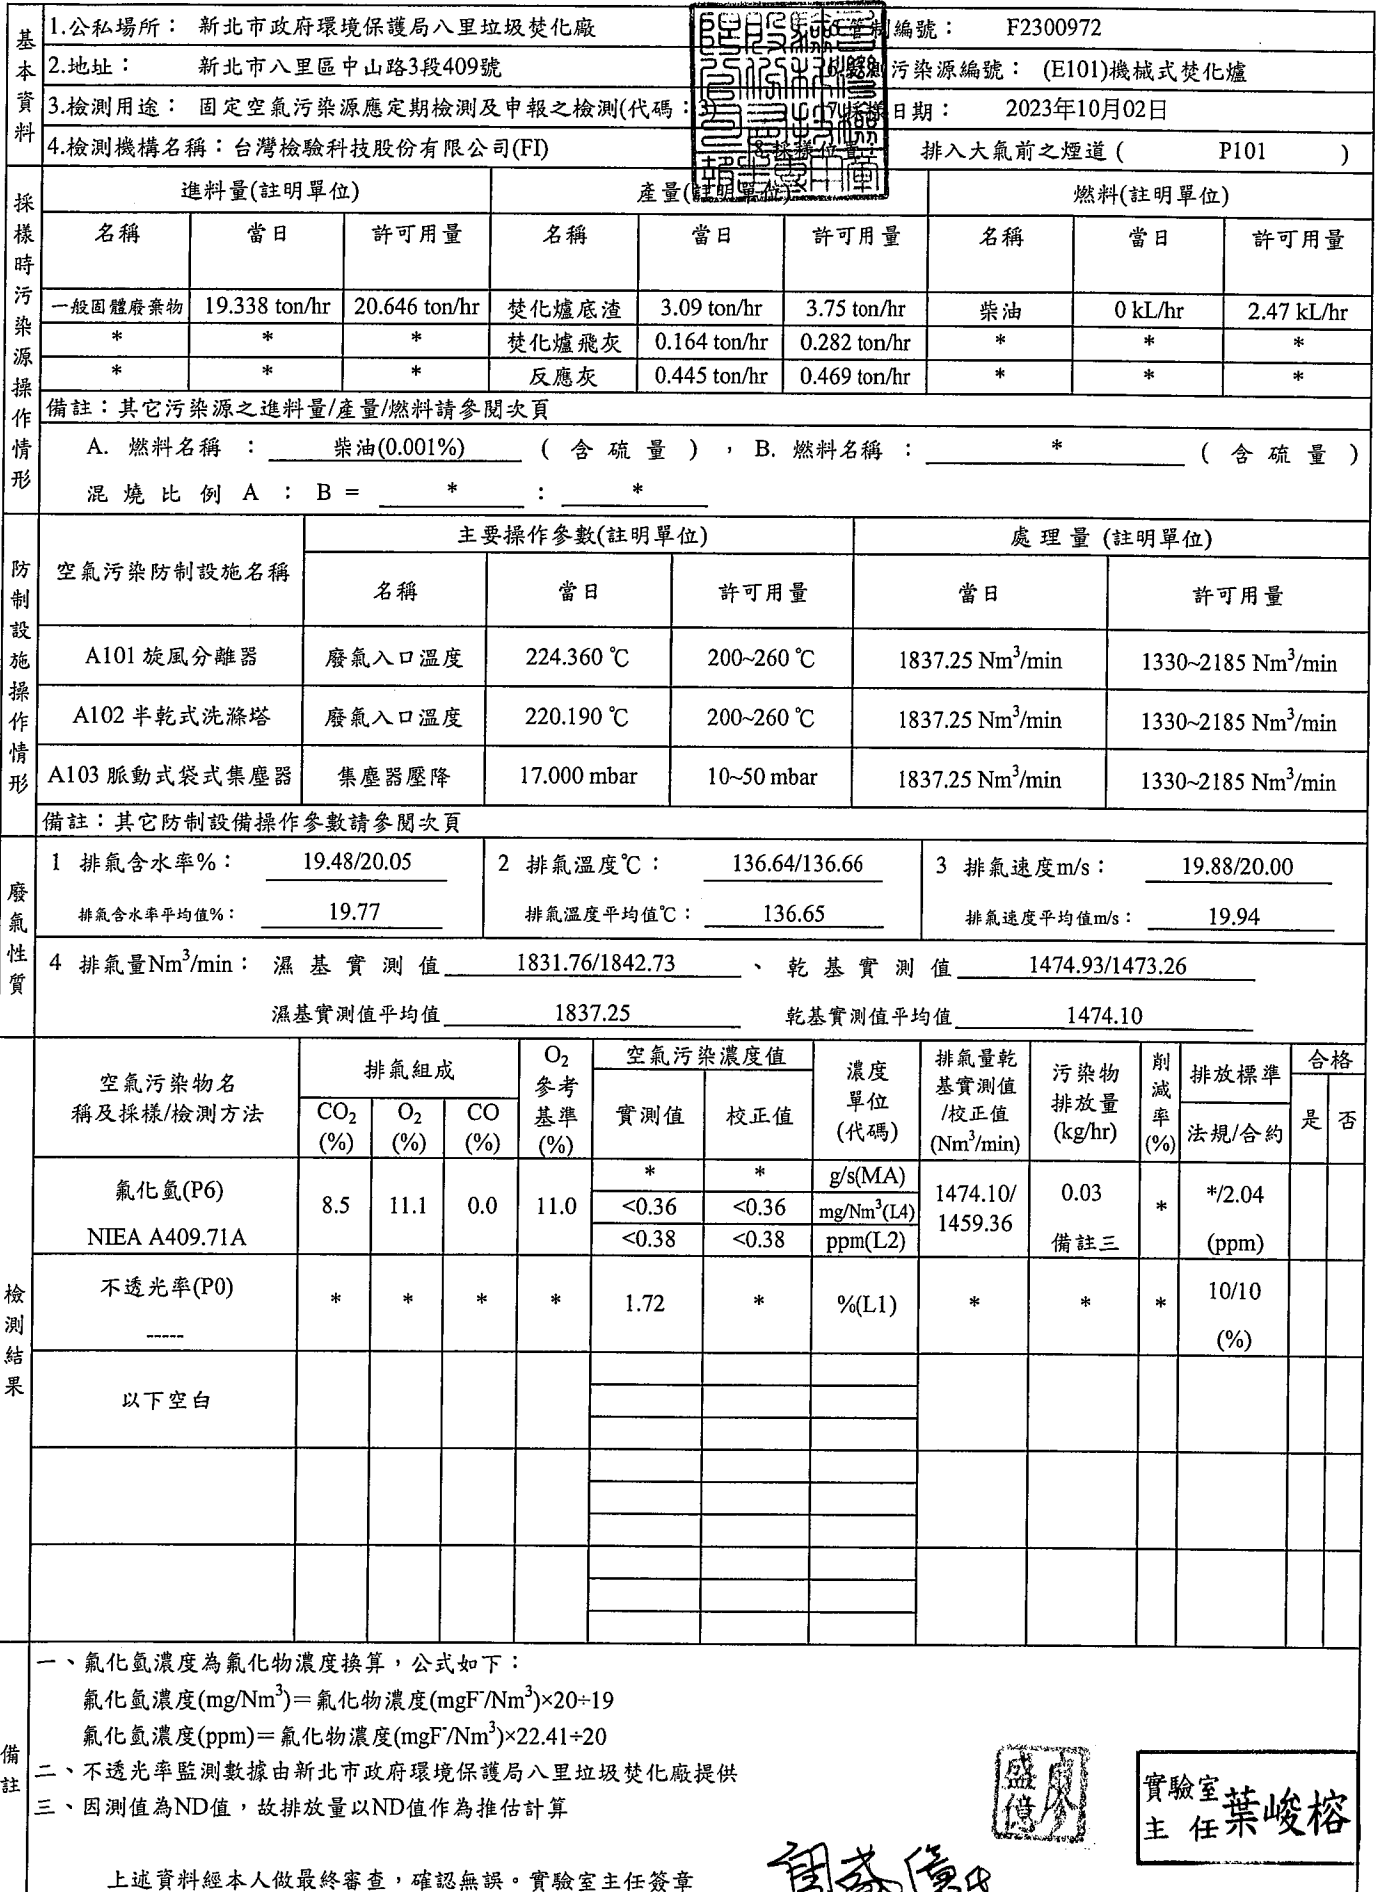 基本資料
1.公私場所： 新北市政府環境保護局八里垃圾焚化廠 管制編號： F2300972
2.地址： 新北市八里區中山路3段409號 污染源編號： (E101)機械式焚化爐
3.檢測用途： 固定空氣污染源應定期檢測及申報之檢測(代碼：3) 7.採樣日期： 2023年10月02日
4.檢測機構名稱：台灣檢驗科技股份有限公司(FI) 8.採樣位置： 排入大氣前之煙道 ( P101 )
採樣時污染源操作情形
進料量(註明單位) 產量(註明單位) 燃料(註明單位)
名稱 當日 許可用量 名稱 當日 許可用量 名稱 當日 許可用量
一般固體廢棄物 19.338 ton/hr 20.646 ton/hr 焚化爐底渣 3.09 ton/hr 3.75 ton/hr 柴油 0 kL/hr 2.47 kL/hr
* * * 焚化爐飛灰 0.164 ton/hr 0.282 ton/hr * * *
* * * 反應灰 0.445 ton/hr 0.469 ton/hr * * *
備註：其它污染源之進料量/產量/燃料請參閱次頁
A. 燃料名稱 ： 柴油(0.001%) ( 含 硫 量 ) ， B. 燃料名稱 ： * ( 含 硫 量 )
混 燒 比 例 A ： B = * ： *
防制設施操作情形
空氣污染防制設施名稱 主要操作參數(註明單位) 處 理 量 (註明單位)
名稱 當日 許可用量 當日 許可用量
A101 旋風分離器 廢氣入口溫度 224.360 ℃ 200~260 ℃ 1837.25 Nm³/min 1330~2185 Nm³/min
A102 半乾式洗滌塔 廢氣入口溫度 220.190 ℃ 200~260 ℃ 1837.25 Nm³/min 1330~2185 Nm³/min
A103 脈動式袋式集塵器 集塵器壓降 17.000 mbar 10~50 mbar 1837.25 Nm³/min 1330~2185 Nm³/min
備註：其它防制設備操作參數請參閱次頁
廢氣性質
1 排氣含水率%： 19.48/20.05 2 排氣溫度℃： 136.64/136.66 3 排氣速度m/s： 19.88/20.00
排氣含水率平均值%： 19.77 排氣溫度平均值℃： 136.65 排氣速度平均值m/s： 19.94
4 排氣量Nm³/min： 濕 基 實 測 值 1831.76/1842.73 、 乾 基 實 測 值 1474.93/1473.26
濕基實測值平均值 1837.25 乾基實測值平均值 1474.10
檢測結果
空氣污染物名稱及採樣/檢測方法 排氣組成 O₂參考基準(%) 空氣污染濃度值 濃度單位(代碼) 排氣量乾基實測值/校正值(Nm³/min) 污染物排放量(kg/hr) 削減率(%) 排放標準 合格
CO₂(%) O₂(%) CO(%) 實測值 校正值 法規/合約 是 否
* * g/s(MA)
氟化氫(P6) 8.5 11.1 0.0 11.0 <0.36 <0.36 mg/Nm³(L4) 1474.10/1459.36 0.03 * */2.04
NIEA A409.71A <0.38 <0.38 ppm(L2) 備註三 (ppm)
不透光率(P0) * * * * 1.72 * %(L1) * * * 10/10
----- (%)
以下空白
備註
一、氟化氫濃度為氟化物濃度換算，公式如下：
氟化氫濃度(mg/Nm³)＝氟化物濃度(mgF⁻/Nm³)×20÷19
氟化氫濃度(ppm)＝氟化物濃度(mgF⁻/Nm³)×22.41÷20
二、不透光率監測數據由新北市政府環境保護局八里垃圾焚化廠提供
三、因測值為ND值，故排放量以ND值作為推估計算
廖盛億
實驗室主任 葉峻榕
上述資料經本人做最終審查，確認無誤。實驗室主任簽章